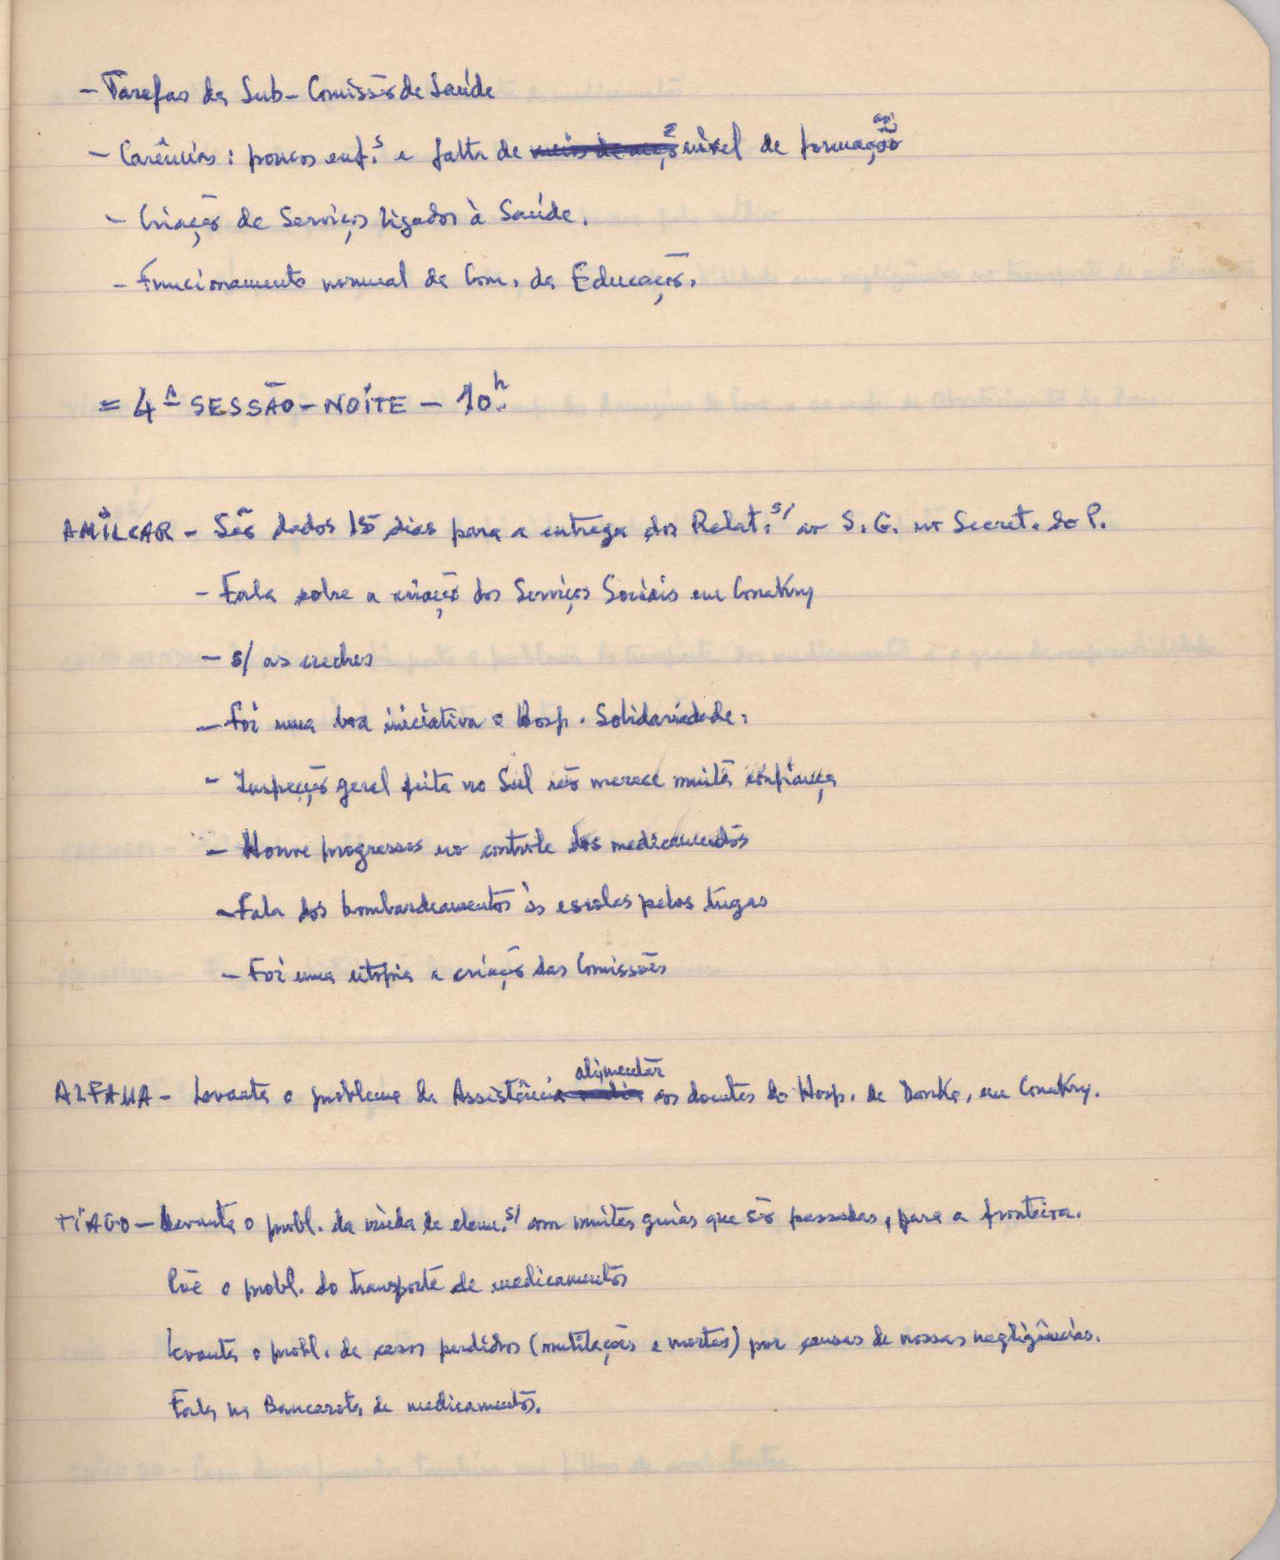 - Tarefas da Sub-Comissão de Saúde
- Carências: poucos enf.s e falta de nível de formação
- Criação de Serviços ligados à Saúde.
- Funcionamento normal da Com. da Educação.
= 4ª SESSÃO - NOITE - 10h
AMÍLCAR - São dados 15 dias para a entrega dos Relat.s/ ao S.G. no Secret. do P.
- Fala sobre a criação dos Serviços Sociais em Conakry
- s/ as creches
- Foi uma boa iniciativa o Hosp. Solidariedade.
- Inspecção geral feita no Sul não merece muita confiança
- Houve progressos no controle dos medicamentos
- Fala dos bombardeamentos às escolas pelos tugas
- Foi uma utopia a criação das Comissões
alimentar
ALFAMA - Levanta o problema da Assistência aos doentes do Hosp. de Donka, em Conakry.
TIAGO - Levanta o probl. da vinda de elem.s/ com muitas guias que são passadas, para a fronteira.
Põe o probl. do transporte de medicamentos
Levanta o probl. de casos perdidos (mutilações e mortes) por causas de nossas negligências.
Fala na Bancarota de medicamentos.